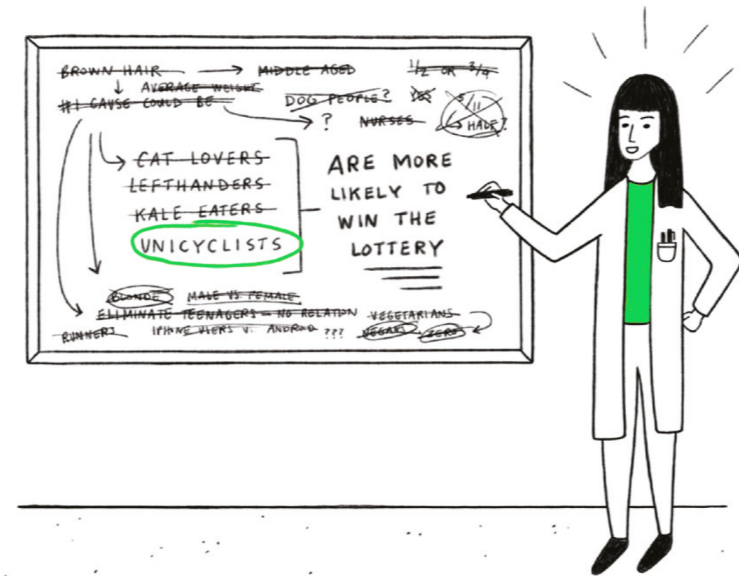 BROWN HAIR → MIDDLE AGED 1/2 OR 3/4
AVERAGE WEIGHT
#1 CAUSE COULD BE
DOG PEOPLE?
5/11
? NURSES
HALF?
CAT LOVERS
LEFTHANDERS
KALE EATERS
UNICYCLISTS
ARE MORE
LIKELY TO
WIN THE
LOTTERY
BLONDE MALE VS. FEMALE
ELIMINATE TEENAGERS = NO RELATION VEGETARIANS
RUNNERS IPHONE USERS V. ANDROID ??? VEGANS ZERO